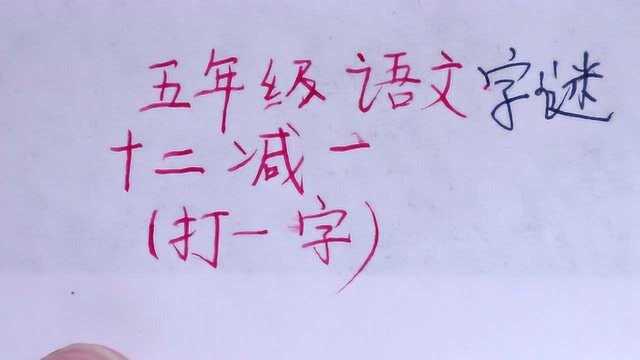 五年级语文字谜
十二减一
(打一字)